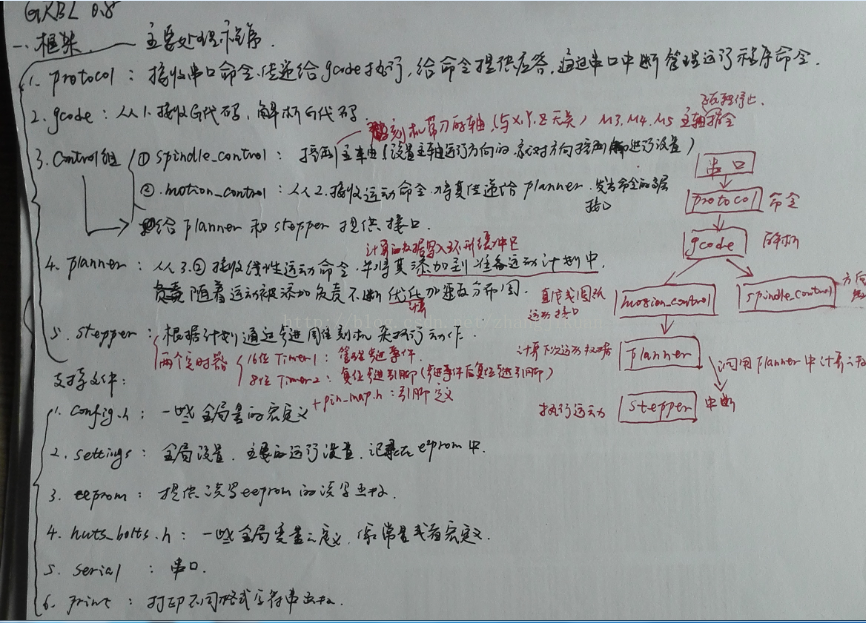 GRBL 0.8
一. 框架 —— 主要处理程序.
1. protocol : 接收串口命令.传递给gcode执行, 给命令提供应答, 通过串口中断管理运行程序命令.
2. gcode : 从1.接收G代码, 解析G代码
刻机带刀的轴, 与X.Y.Z无关, M3.M4.M5 主轴指令
停止.
3. Control组 ① spindle_control : 控制主轴 (设置主轴运行方向的.
② motion_control : 从2.接收运动命令.将其传递给planner.
接口
给planner和stepper提供接口.
计算的数据写入环形缓冲区
4. planner : 从3.②接收线性运动命令.并将其添加到准备运动计划中.
负责随着运动被添加负责不断优化加速度
5. stepper : 根据计划通过步进
两个定时器
16位Timer1 : 管理步进事件
8位Timer2 : 复位步进引脚 (步进事件后复位步进引脚)
串口
protocol 命令
gcode 解析
直线或圆弧
运动接口
motion_control
spindle_control 方向
计算下次运动数据
planner
调用planner中计算
执行运动 stepper 中断
支持文件:
1. config.h : 一些全局量的宏定义
+ pin_map.h : 引脚定义
2. settings : 全局设置. 主要的运行设置. 记录在eeprom中.
3. eeprom : 提供读写eeprom的读写函数.
4. nuts_bolts.h : 一些全局变量定义.
5. serial : 串口.
6. print : 打印不同格式字符串函数.